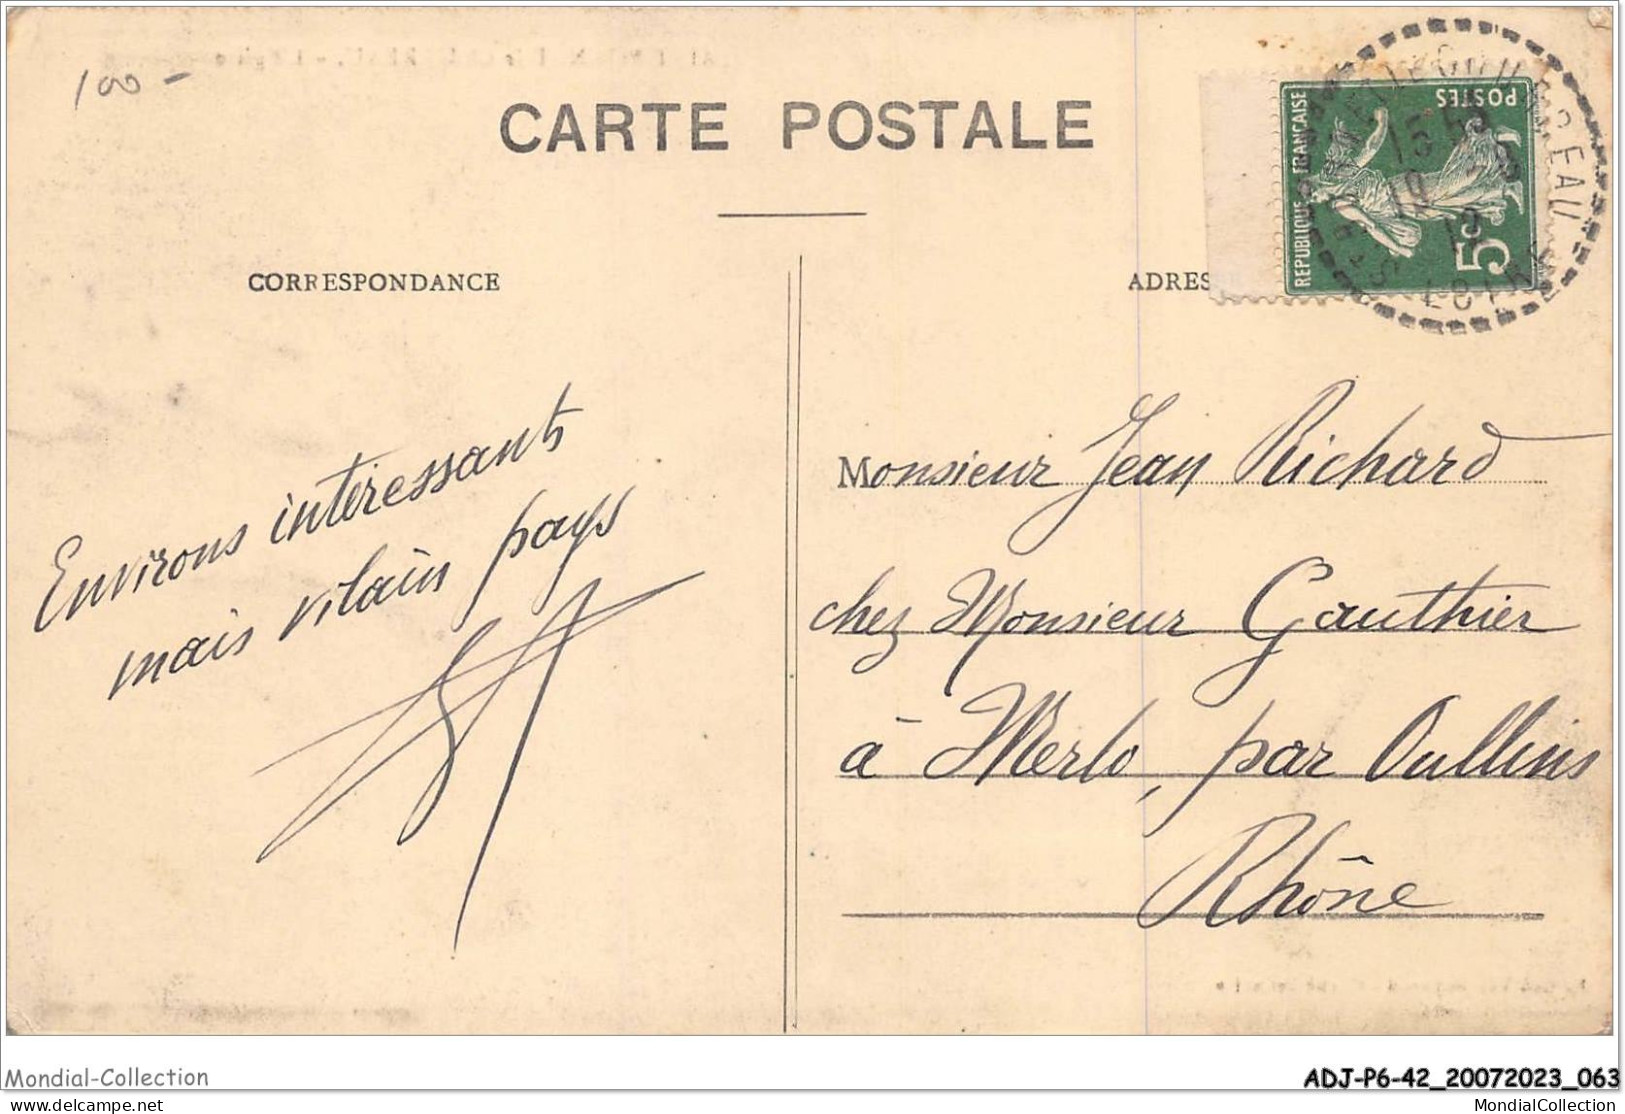 100 -
CARTE POSTALE
CORRESPONDANCE
ADRES
REPUBLIQUE FRANÇAISE
POSTES
5c
Environs intéressants
mais vilain pays
Monsieur Jean Richard
chez Monsieur Gauthier
à Merlo, par Oullins
Rhône
Mondial-Collection
ADJ-P6-42_20072023_063
delcampe.net
MondialCollection